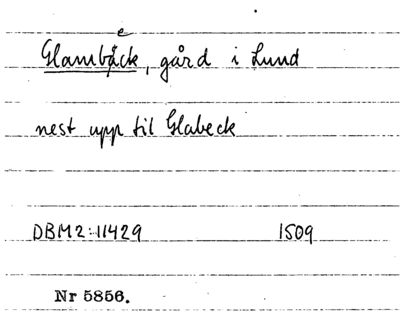 Glambäck, gård i Lund
nest upp til Glabeck
DBM2:11429 1509
Nr 5856.